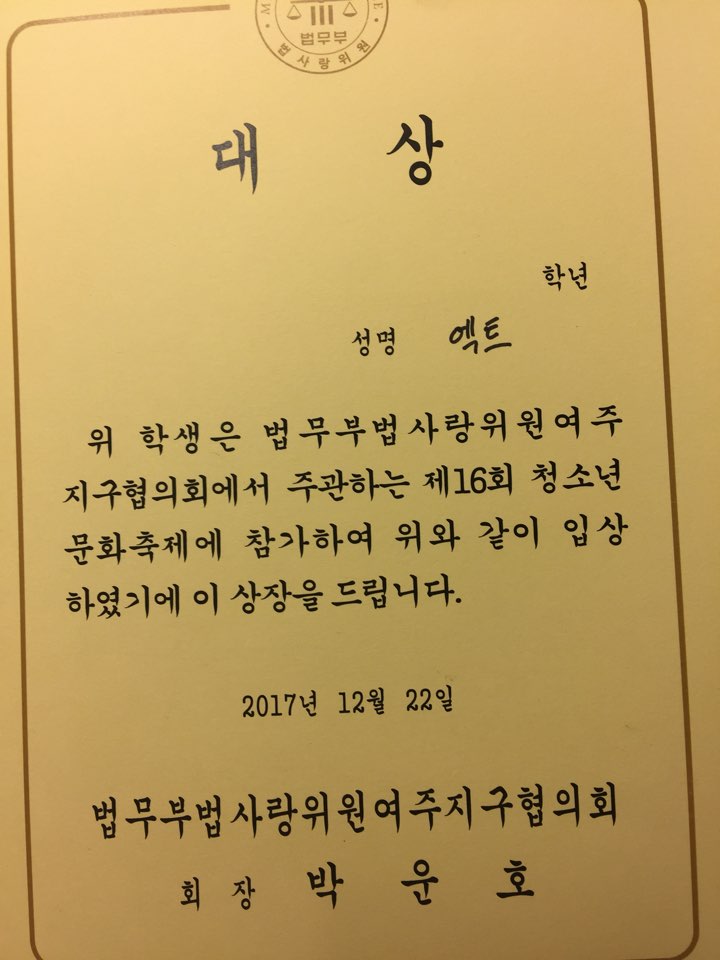 법무부
법사랑위원
대 상
학년
성명 엑트
위 학생은 법무부법사랑위원여주
지구협의회에서 주관하는 제16회 청소년
문화축제에 참가하여 위와 같이 입상
하였기에 이 상장을 드립니다.
2017년 12월 22일
법무부법사랑위원여주지구협의회
회 장 박 운 호